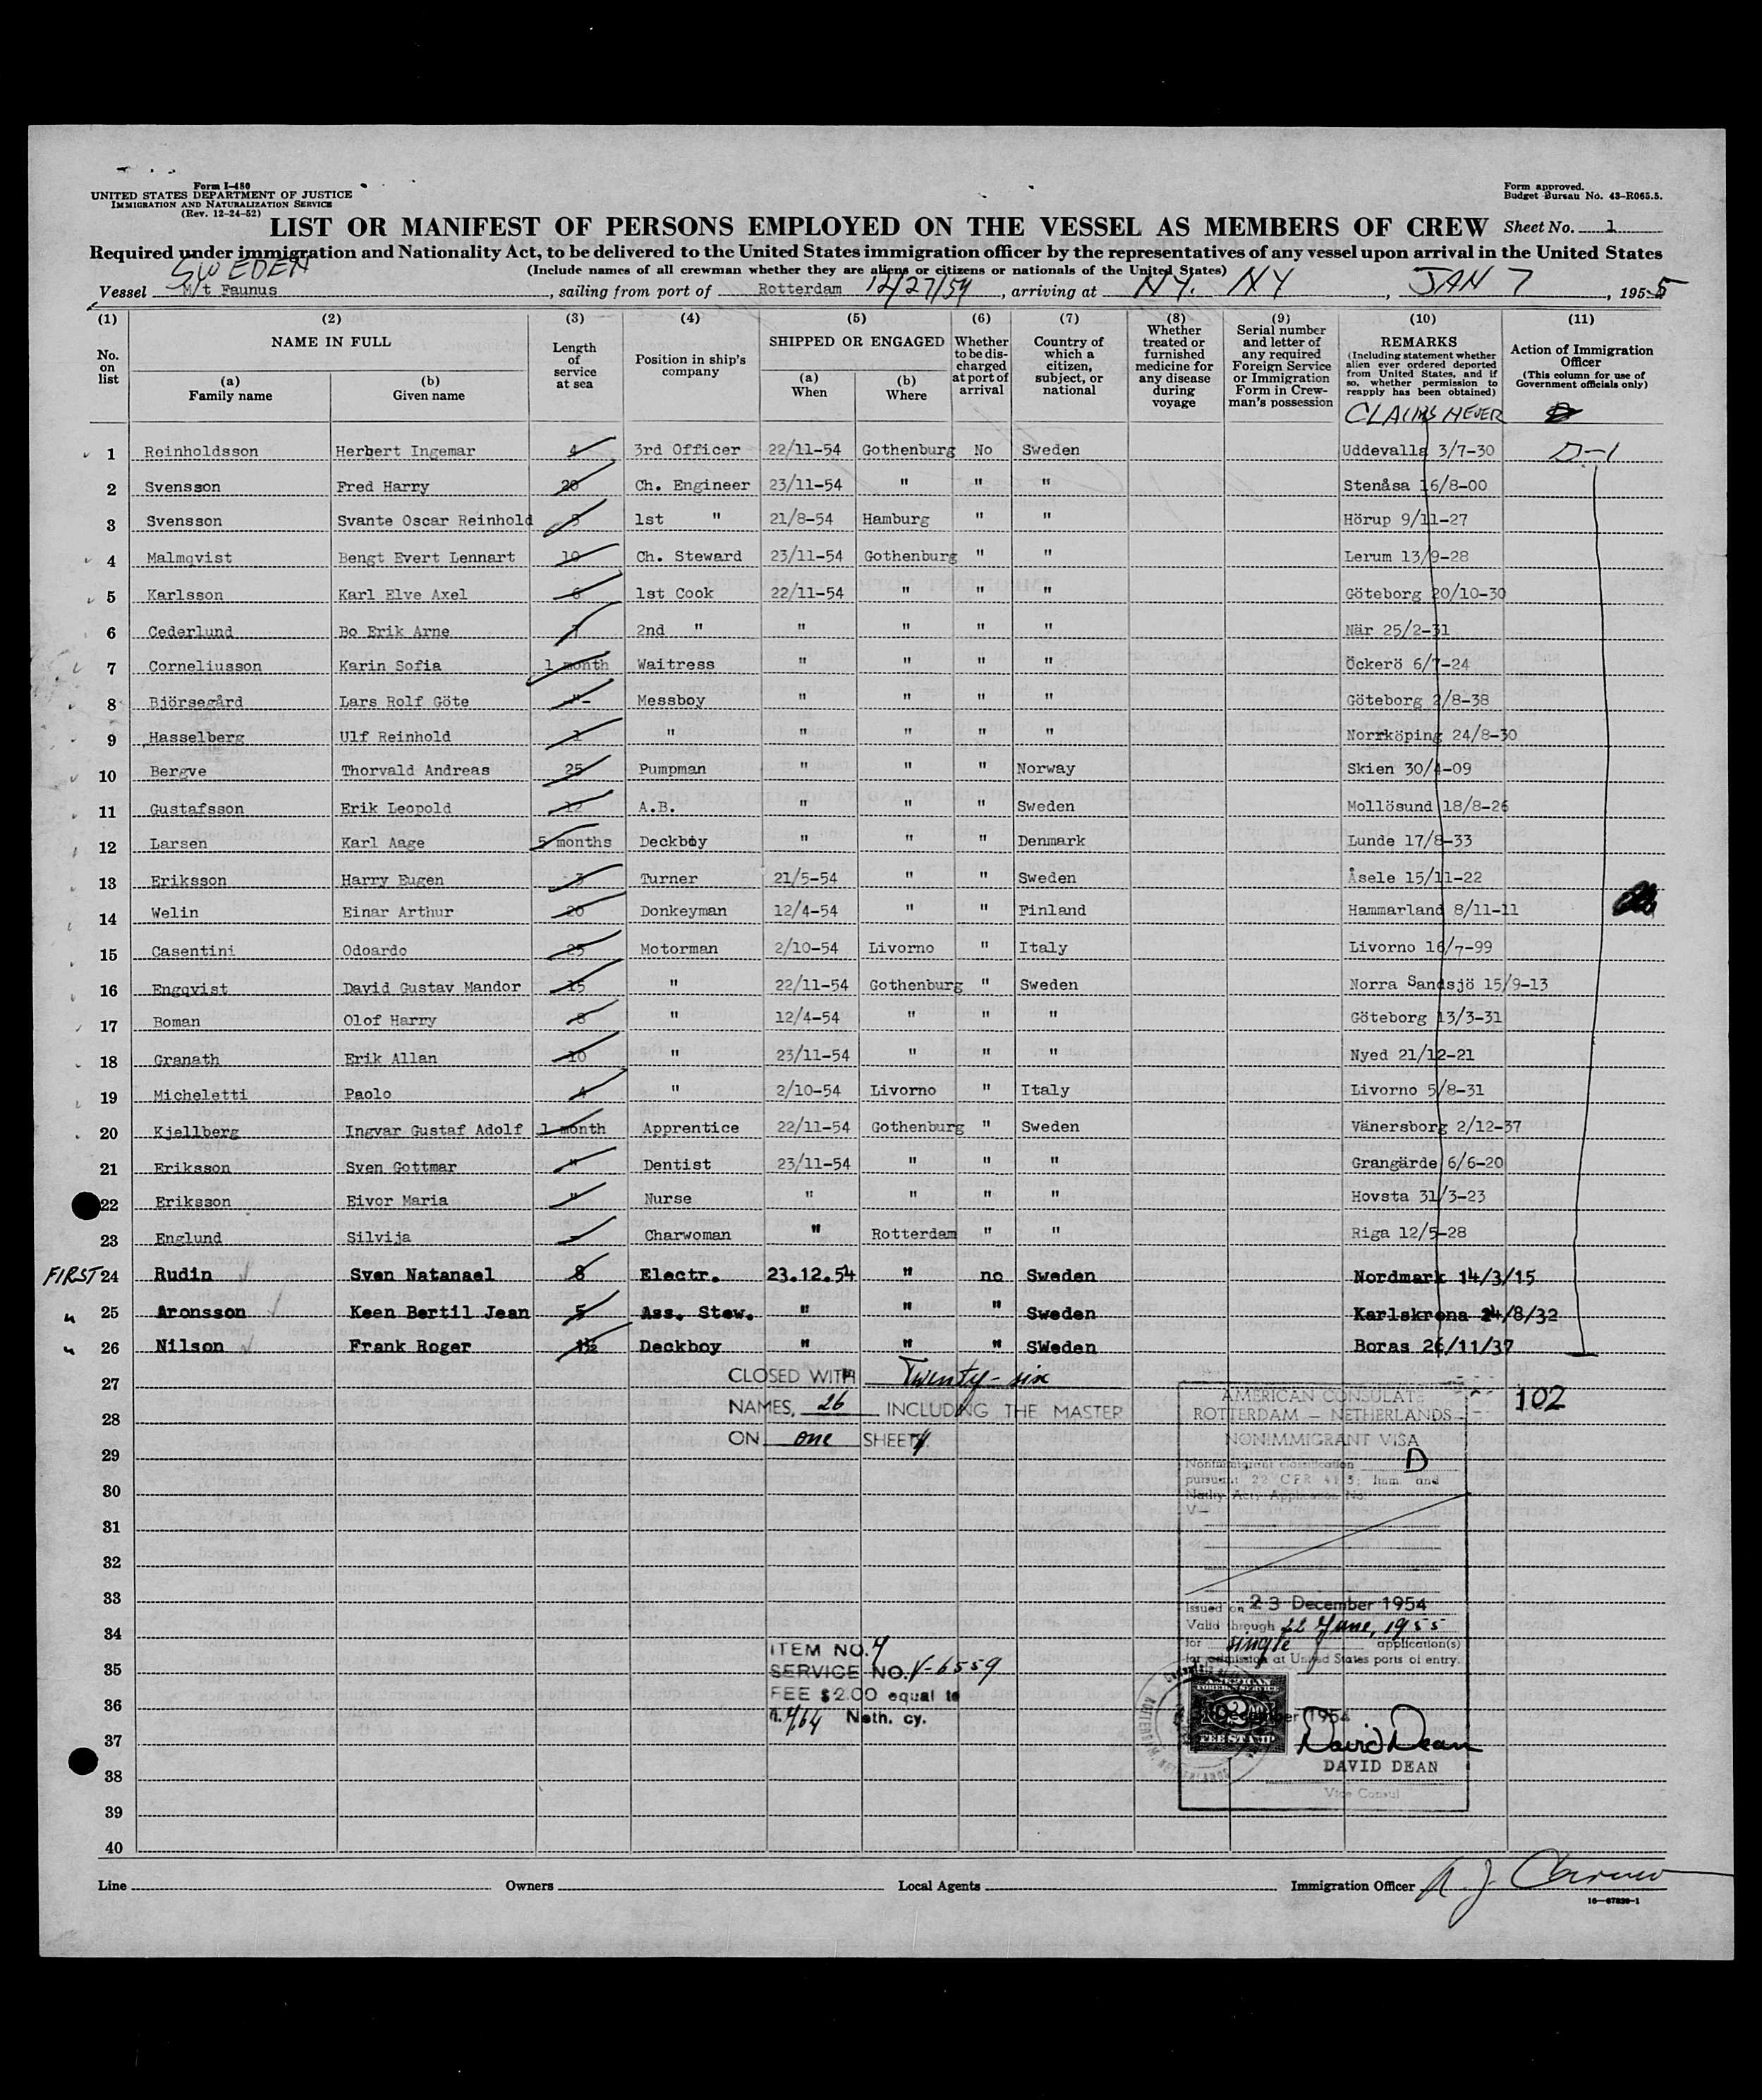 Form I-480
UNITED STATES DEPARTMENT OF JUSTICE
IMMIGRATION AND NATURALIZATION SERVICE
(Rev. 12-24-52)
Form approved.
Budget Bureau No. 43-R065.5.
LIST OR MANIFEST OF PERSONS EMPLOYED ON THE VESSEL AS MEMBERS OF CREW Sheet No. 1
Required under immigration and Nationality Act, to be delivered to the United States immigration officer by the representatives of any vessel upon arrival in the United States
(Include names of all crewman whether they are aliens or citizens or nationals of the United States)
SWEDEN
Vessel M/t Faunus, sailing from port of Rotterdam 12/27/54, arriving at N.Y. NY, JAN 7, 1955
(1) (2) (3) (4) (5) (6) (7) (8) (9) (10) (11)
No. on list
NAME IN FULL
(a) Family name
(b) Given name
Length of service at sea
Position in ship's company
SHIPPED OR ENGAGED
(a) When
(b) Where
Whether to be discharged at port of arrival
Country of which a citizen, subject, or national
Whether treated or furnished medicine for any disease during voyage
Serial number and letter of any required Foreign Service or Immigration Form in Crewman's possession
REMARKS
(Including statement whether alien ever ordered deported from United States, and if so, whether permission to reapply has been obtained)
Action of Immigration Officer
(This column for use of Government officials only)
CLAIMS NEVER
1 Reinholdsson Herbert Ingemar 4 3rd Officer 22/11-54 Gothenburg No Sweden Uddevalla 3/7-30 D-1
2 Svensson Fred Harry 20 Ch. Engineer 23/11-54 " " " Stenåsa 16/8-00
3 Svensson Svante Oscar Reinhold 5 1st " 21/8-54 Hamburg " " Hörup 9/11-27
4 Malmqvist Bengt Evert Lennart 10 Ch. Steward 23/11-54 Gothenburg " " Lerum 13/9-28
5 Karlsson Karl Elve Axel 6 1st Cook 22/11-54 " " " Göteborg 20/10-30
6 Cederlund Bo Erik Arne 7 2nd " " " " " När 25/2-31
7 Corneliusson Karin Sofia 1 month Waitress " " " " Öckerö 6/7-24
8 Björsegård Lars Rolf Göte -"- Messboy " " " " Göteborg 2/8-38
9 Hasselberg Ulf Reinhold 1 " " " " " Norrköping 24/8-30
10 Bergve Thorvald Andreas 25 Pumpman " " " Norway Skien 30/4-09
11 Gustafsson Erik Leopold 12 A.B. " " " Sweden Mollösund 18/8-26
12 Larsen Karl Aage 5 months Deckboy " " " Denmark Lunde 17/8-33
13 Eriksson Harry Eugen 3 Turner 21/5-54 " " Sweden Åsele 15/11-22
14 Welin Einar Arthur 20 Donkeyman 12/4-54 " " Finland Hammarland 8/11-11
15 Casentini Odoardo 25 Motorman 2/10-54 Livorno " Italy Livorno 16/7-99
16 Engqvist David Gustav Mandor 15 " 22/11-54 Gothenburg " Sweden Norra Sandsjö 15/9-13
17 Boman Olof Harry 8 " 12/4-54 " " " Göteborg 13/3-31
18 Granath Erik Allan 10 " 23/11-54 " " " Nyed 21/12-21
19 Micheletti Paolo 4 " 2/10-54 Livorno " Italy Livorno 5/8-31
20 Kjellberg Ingvar Gustaf Adolf 1 month Apprentice 22/11-54 Gothenburg " Sweden Vänersborg 2/12-37
21 Eriksson Sven Gottmar " Dentist 23/11-54 " " " Grangärde 6/6-20
22 Eriksson Eivor Maria " Nurse " " " " Hovsta 31/3-23
23 Englund Silvija - Charwoman " Rotterdam " " Riga 12/5-28
FIRST 24 Rudin Sven Natanael 8 Electr. 23.12.54 " no Sweden Nordmark 14/3/15
" 25 Aronsson Keen Bertil Jean 5 Ass. Stew. " " " Sweden Karlskrona 24/8/32
" 26 Nilson Frank Roger 1½ Deckboy " " " SWeden Boras 26/11/37
27 CLOSED WITH Twenty-six
28 NAMES, 26 INCLUDING THE MASTER
29 ON one SHEET
30
31
32
33
34
35
36
37
38
39
40
102
AMERICAN CONSULATE
ROTTERDAM - NETHERLANDS
NONIMMIGRANT VISA
Nonimmigrant classification D
pursuant 22 CFR 41.5: Imm. and
Natlty Act; Application No.
V-
Issued on 23 December 1954
Valid through 22 June, 1955
for single application(s)
for admission at United States ports of entry.
ITEM NO. 4
SERVICE NO. V-6559
FEE $2.00 equal to
Neth. cy.
AMERICAN
FOREIGN SERVICE
FEE STAMP
December 1954
David Dean
DAVID DEAN
Vice Consul
Line Owners Local Agents Immigration Officer
16-67820-1